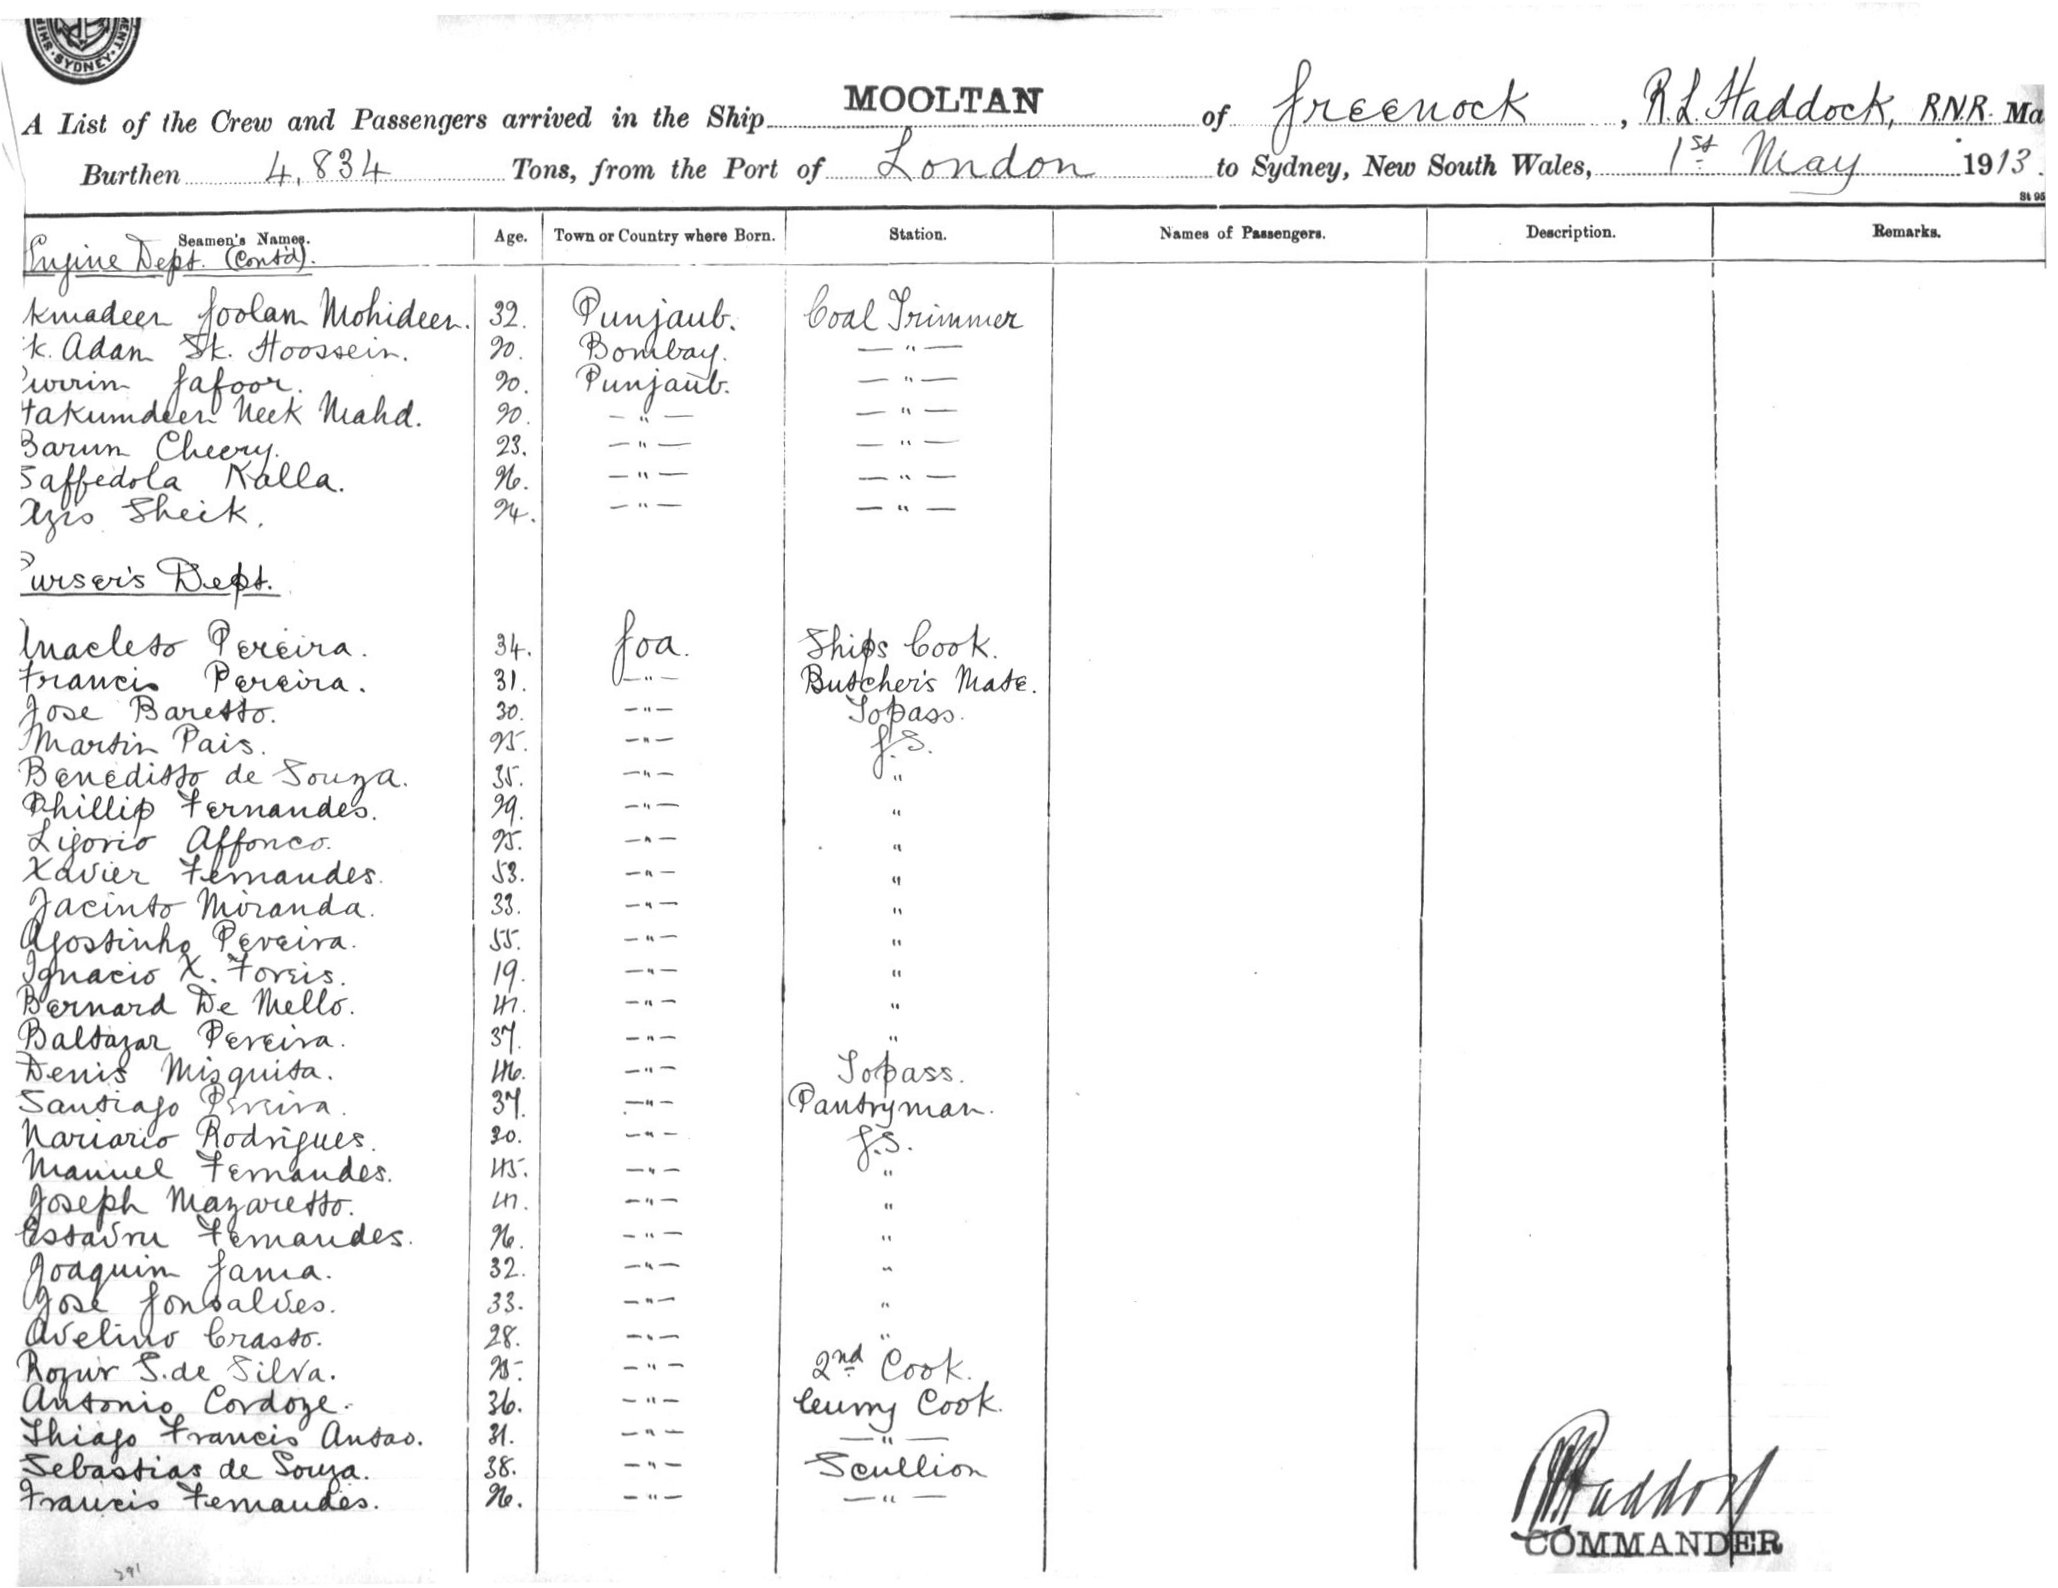 SYDNEY
A List of the Crew and Passengers arrived in the Ship MOOLTAN of Greenock, R.L. Haddock, R.N.R. Ma
Burthen 4,834 Tons, from the Port of London to Sydney, New South Wales, 1st May 1913.
St 95
Seamen's Names. Age. Town or Country where Born. Station. Names of Passengers. Description. Remarks.
Engine Dept. (Contd).
kmadeen Goolam Mohideen. 32. Punjaub. Coal Trimmer
k. Adam Sk. Hoossein. 20. Bombay. — " —
urrim Gafoor. 20. Punjaub. — " —
akumdeen Neek Mahd. 20. — " — — " —
Barum Cheery. 23. — " — — " —
Saffedola Kalla. 26. — " — — " —
Azis Sheik. 24. — " — — " —
Purser's Dept.
Anacleto Pereira. 34. Goa. Ships Cook.
Francis Pereira. 31. — " — Butcher's Mate.
Jose Baretto. 30. — " — Topass.
Martin Pais. 25. — " — G.S.
Beneditto de Souza. 35. — " — "
Phillip Fernandes. 29. — " — "
Ligorio Affonco. 25. — " — "
Xavier Fernandes. 53. — " — "
Jacinto Miranda. 33. — " — "
Agostinho Pereira. 55. — " — "
Ignacio X. Foreis. 19. — " — "
Bernard De Mello. 41. — " — "
Baltazar Pereira. 37. — " — "
Denis Misquita. 46. — " — Topass.
Santiago Pereira. 37. — " — Pantryman.
Nariario Rodrigues. 30. — " — G.S.
Manuel Fernandes. 45. — " — "
Joseph Mazaretto. 41. — " — "
Estavru Fernandes. 26. — " — "
Joaquim Gama. 32. — " — "
Jose Gonsalves. 33. — " — "
Avelino Crasto. 28. — " — "
Rozur S. de Silva. 25. — " — 2nd Cook.
Antonio Cordoze. 36. — " — Curry Cook.
Thiago Francis Antao. 31. — " — — " —
Sebastias de Souza. 38. — " — Scullion
Francis Fernandes. 26. — " — — " —
RLHaddock
COMMANDER
291